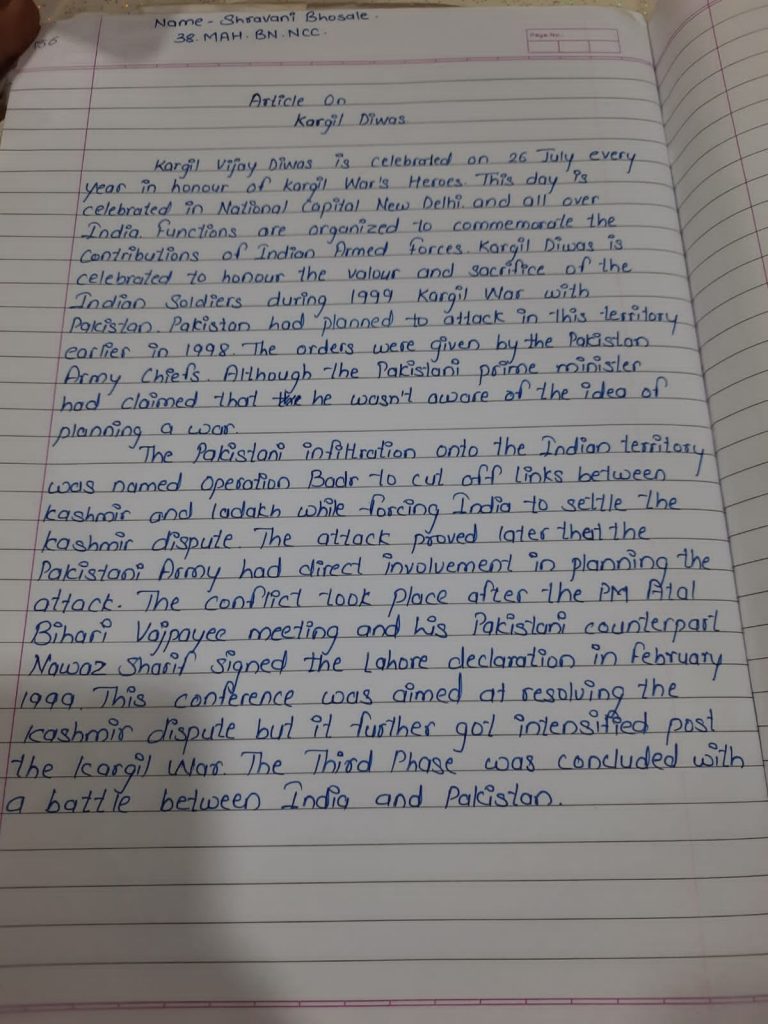 Name - Shravani Bhosale.
38. MAH. BN. NCC.
Page No.
Article On
Kargil Diwas
Kargil Vijay Diwas is celebrated on 26 July every
year in honour of Kargil War's Heroes. This day is
celebrated in National Capital New Delhi and all over
India. Functions are organized to commemorate the
contributions of Indian Armed Forces. Kargil Diwas is
celebrated to honour the valour and sacrifice of the
Indian Soldiers during 1999 Kargil War with
Pakistan. Pakistan had planned to attack in this territory
earlier in 1998. The orders were given by the Pakistan
Army Chiefs. Although the Pakistani prime minister
had claimed that he wasn't aware of the idea of
planning a war.
The Pakistani infiltration onto the Indian territory
was named Operation Badr to cut off links between
Kashmir and Ladakh while forcing India to settle the
Kashmir dispute. The attack proved later that the
Pakistani Army had direct involvement in planning the
attack. The conflict took place after the PM Atal
Bihari Vajpayee meeting and his Pakistani counterpart
Nawaz Sharif signed the Lahore declaration in February
1999. This conference was aimed at resolving the
Kashmir dispute but it further got intensified post
the Kargil War. The Third Phase was concluded with
a battle between India and Pakistan.